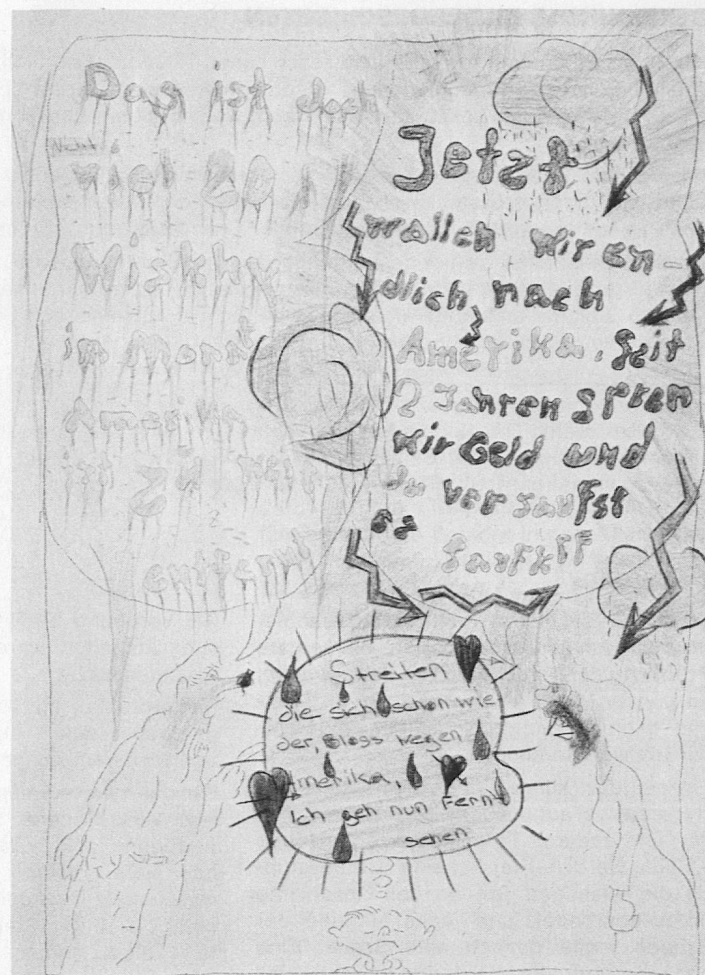 Das ist doch
Wiskhy
im Mond.
Amerika
ist zu
entfernt
Jetzt
wollen wir en-
dlich nach
Amerika. Seit
2 Jahren spren
wir Geld und
du versaufst
es
Streiten
die sich schon wie
der, Bloss wegen
Amerika,
Ich geh nun Fern
sehen